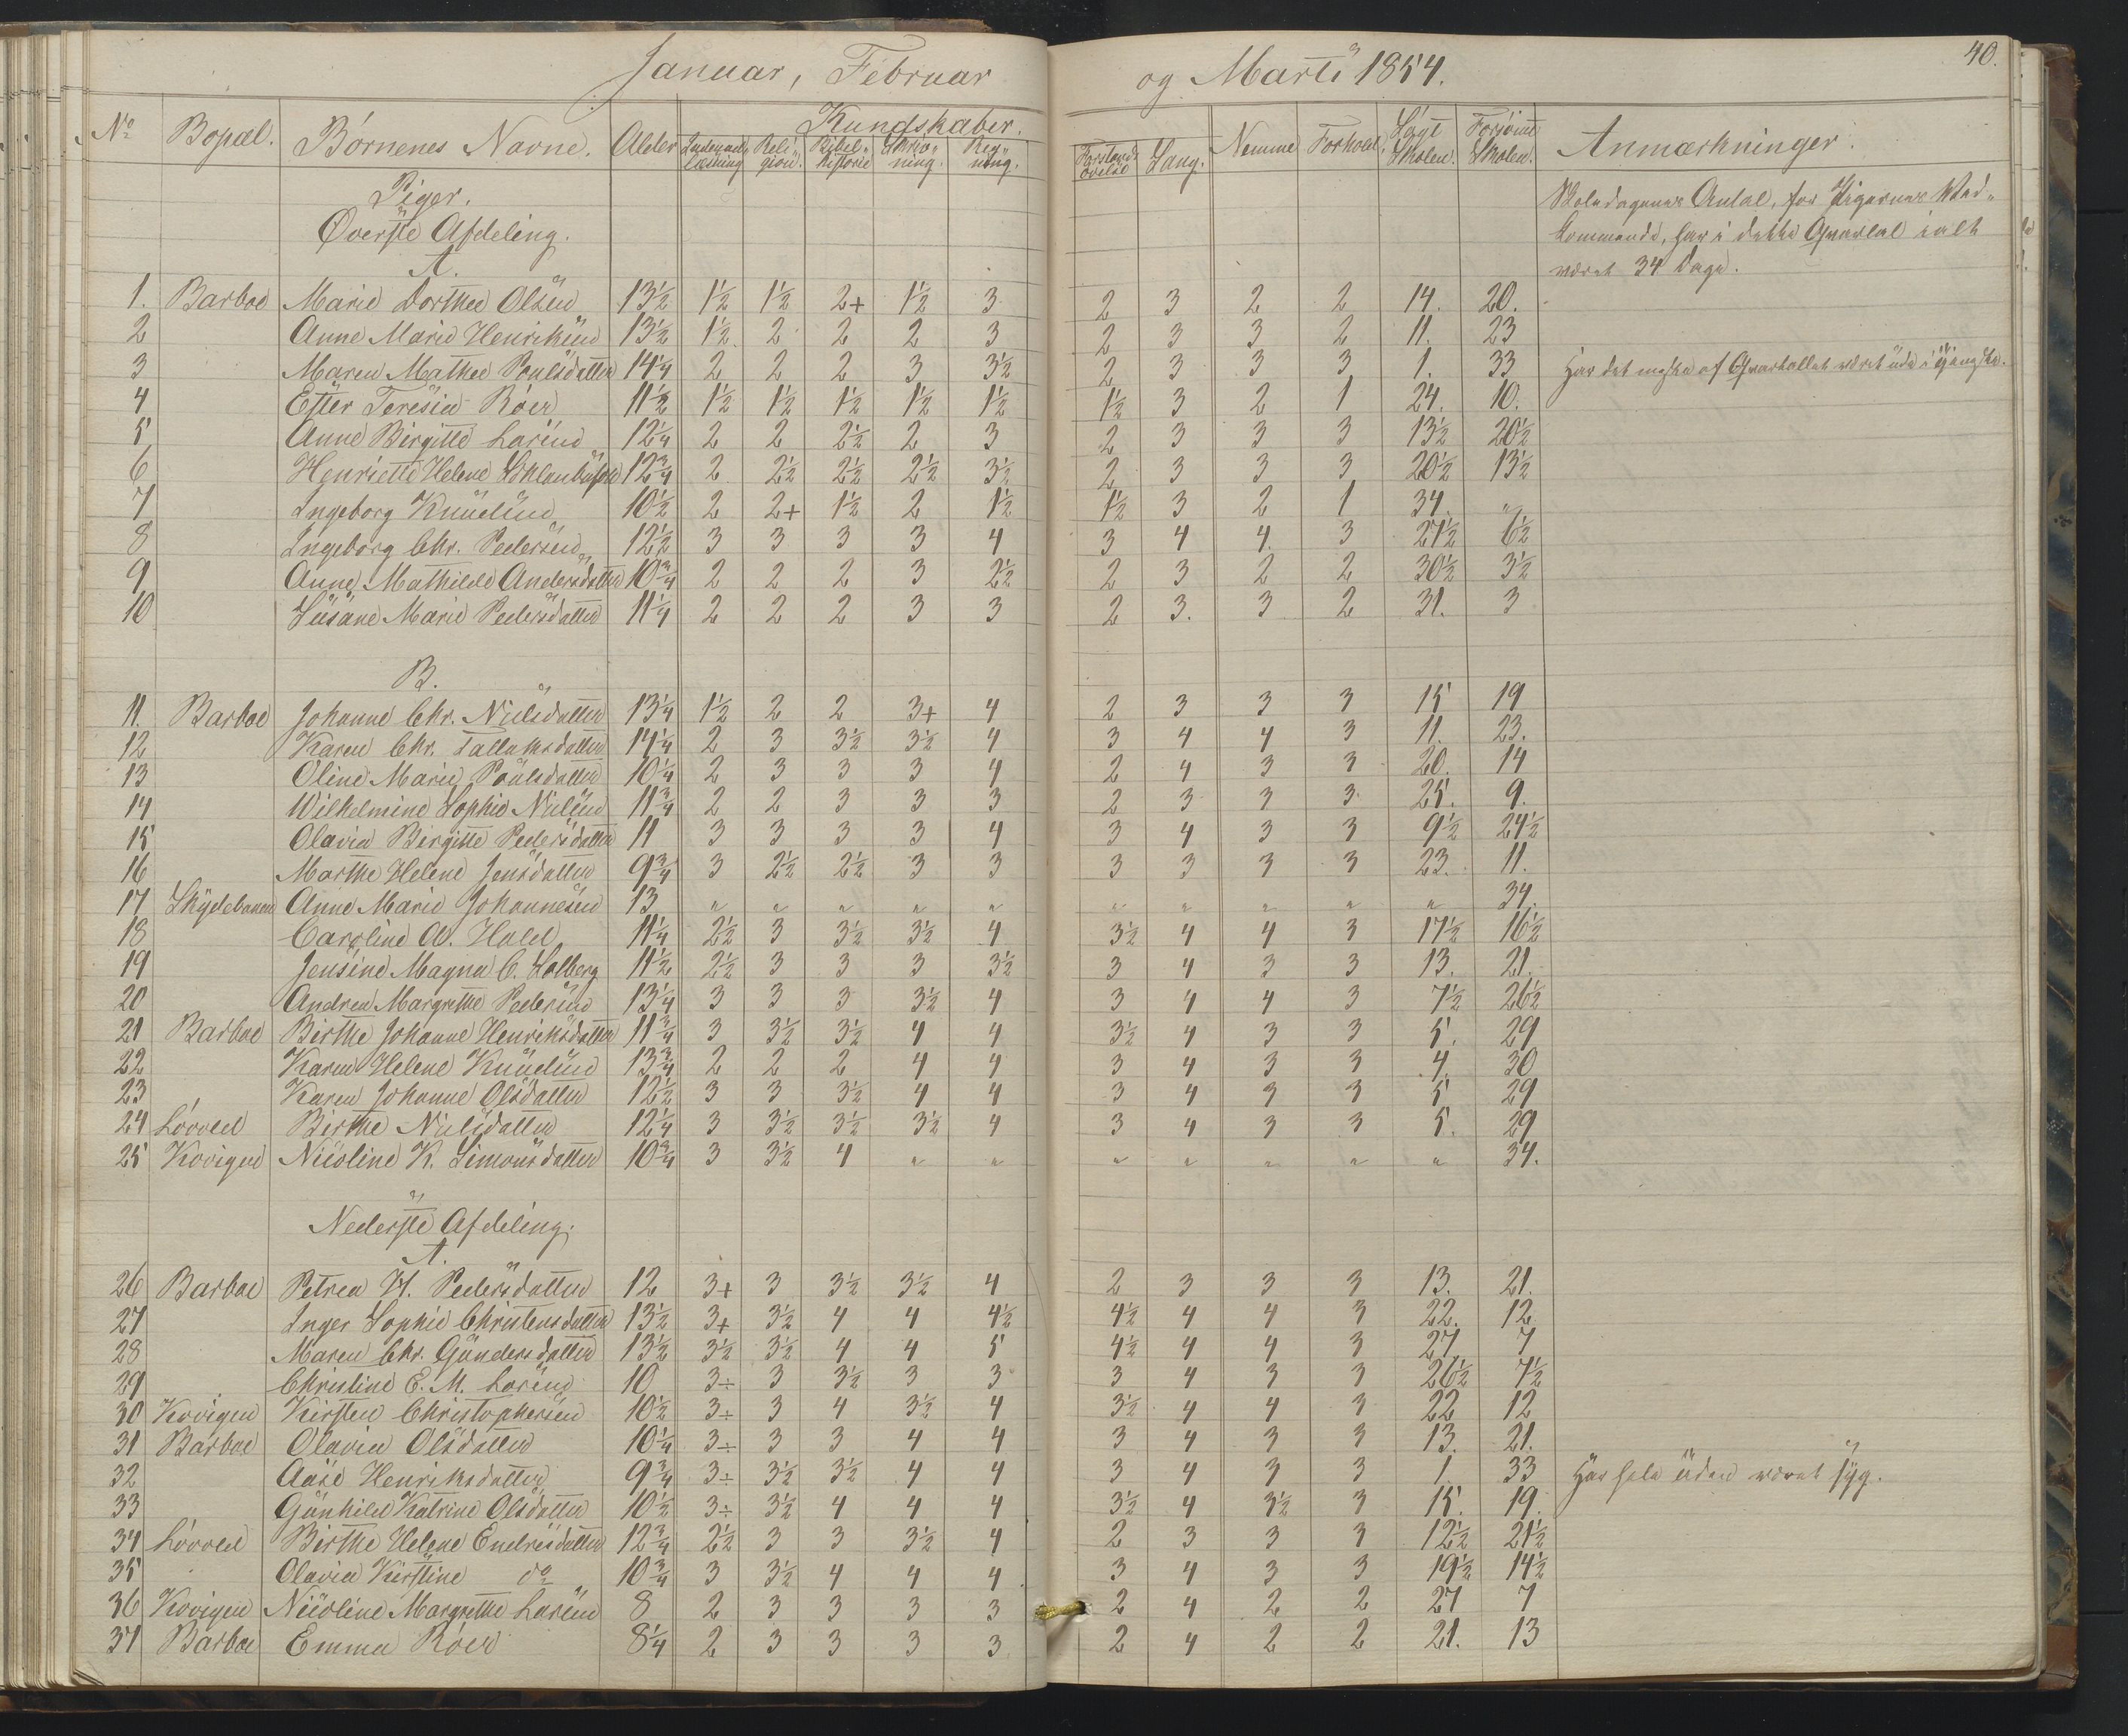 Januar, Februar og Marts 1854. 40.
No Bopæl. Børnenes Navne. Alder Kundskaber. Nemme Forhold. Søgt Skolen. Forsømt Skolen. Anmærkninger.
Indenadslæsning Religion. Bibelhistorie Skrivning. Regning. Forstandsøvelse Sang.
Piger.
Øverste Afdeling.
A.
Skoledagenes Antal, for Pigernes Vedkommende, har i dette Qvartal i alt været 34 Dage.
1. Barboe Marie Dorthea Olsen 13½ 1½ 1½ 2+ 1½ 3 2 3 2 2 14. 20.
2 Anne Marie Henriksen 13½ 1½ 2 2 2 3 2 3 3 2 11. 23
3 Maren Mathea Poulsdatter 14¼ 2 2 2 3 3½ 2 3 3 3 1. 33 Har det meste af Qvartallet været ude i Tjeneste.
4 Ester Teresia Röer 11½ 1½ 1½ 1½ 1½ 1½ 1½ 3 2 1 24. 10.
5 Anne Birgitte Larsen 12¼ 2 2 2½ 2 3 2 3 3 3 13½ 20½
6 Henriette Helene 12¾ 2 2½ 2½ 2½ 3½ 2 3 3 3 20½ 13½
7 Ingeborg Knudsen 10½ 2 2+ 1½ 2 1½ 1½ 3 2 1 34. "
8 Ingeborg Chr. Pedersen 12½ 3 3 3 3 4 3 4 4. 3 27½ 6½
9 Anne Mathilde Andersdatter 10¾ 2 2 2 3 2½ 2 3 2 2 30½ 3½
10 Susane Marie Pedersdatter 11¼ 2 2 2 3 3 2 3. 3 2 31. 3
B.
11. Barboe Johanne Chr. Nielsdatter 13¼ 1½ 2 2 3+ 4 2 3 3 3 15 19
12 Karen Chr. Tallaksdatter 14¼ 2 3 3½ 3½ 4 3 4 4 3 11. 23.
13 Oline Marie Poulsdatter 10¼ 2 3 3 3 4 2 4 3 3 20. 14
14 Wilhelmine Sophie Nielsen 11¾ 2 2 3 3 3 2 3 3 3 25. 9.
15 Olavia Birgitte Pedersdatter 11 3 3 3 3 4 3 4 3 3 9½ 24½
16 Marthe Helene Jensdatter 9¾ 3 2½ 2½ 3 3 3 3 3 3 23. 11.
17 Skydebanen Anne Marie Johannesen 13 " " " " " " " " " " 34.
18 Caroline A. Hald 11¼ 2½ 3 3½ 3½ 4 3½ 4 4 3 17½ 16½
19 Jensine Magna C. Solberg 11½ 2½ 3 3 3 3½ 3 4 3 3 13. 21.
20 Andrea Margrethe Pedersen 13¼ 3 3 3 3½ 4 3 4 4 3 7½ 26½
21 Barboe Birthe Johanne Henriksdatter 11¾ 3 3½ 3½ 4 4 3½ 4 3 3 5. 29
22 Karen Helene Knudsen 13¾ 2 2 2 4 4 3 4 3 3 4. 30
23 Karen Johanne Olsdatter 12½ 3 3 3½ 4 4 3 4 3 3 5 29
24 Løvold Birthe Nielsdatter 12¼ 3 3½ 3½ 3½ 4 3 4 3 3 5. 29
25 Kovigen Nicoline K. Simonsdatter 10¾ 3 3½ 4 " " " " " " " 34.
Nederste Afdeling.
A.
26 Barboe Petrea H. Pedersdatter 12 3+ 3 3½ 3½ 4 2 3 3 3 13. 21.
27 Inger Sophie Christensdatter 13½ 3+ 3½ 4 4 4½ 4½ 4 4 3 22. 12
28 Maren Chr. Gundersdatter 13½ 3½ 3½ 4 4 5 4½ 4 4 3 27 7
29 Christine E. M. Larsen 10 3÷ 3 3½ 3 3 3 4 3 3 26½ 7½
30 Kovigen Kirsten Christophersen 10½ 3÷ 3 4 3½ 4 3½ 4 4 3 22 12
31 Barboe Olavia Olsdatter 10¼ 3÷ 3 3 4 4 3 4 3 3 13. 21.
32 Aase Henriksdatter 9¾ 3÷ 3½ 3½ 4 4 3 4 3 3 1. 33 Har hele Tiden været syg.
33 Gunhild Katrine Olsdatter 10½ 3÷ 3½ 4 4 4 3½ 4 3½ 3 15. 19.
34 Løvold Birthe Helene Endresdatter 12¾ 2½ 3 3 3½ 4 2 3 3 3 12½ 21½
35 Olavia Kirstine do 10¾ 3 3½ 4 4 4 3 4 3 3 19½ 14½
36 Kovigen Nicoline Margrethe Larsen 8 2 3 3 3 3 2 4 2 2 27 7
37 Barboe Emma Röer 8¼ 2 3 3 3 3 2 4 2 2 21. 13